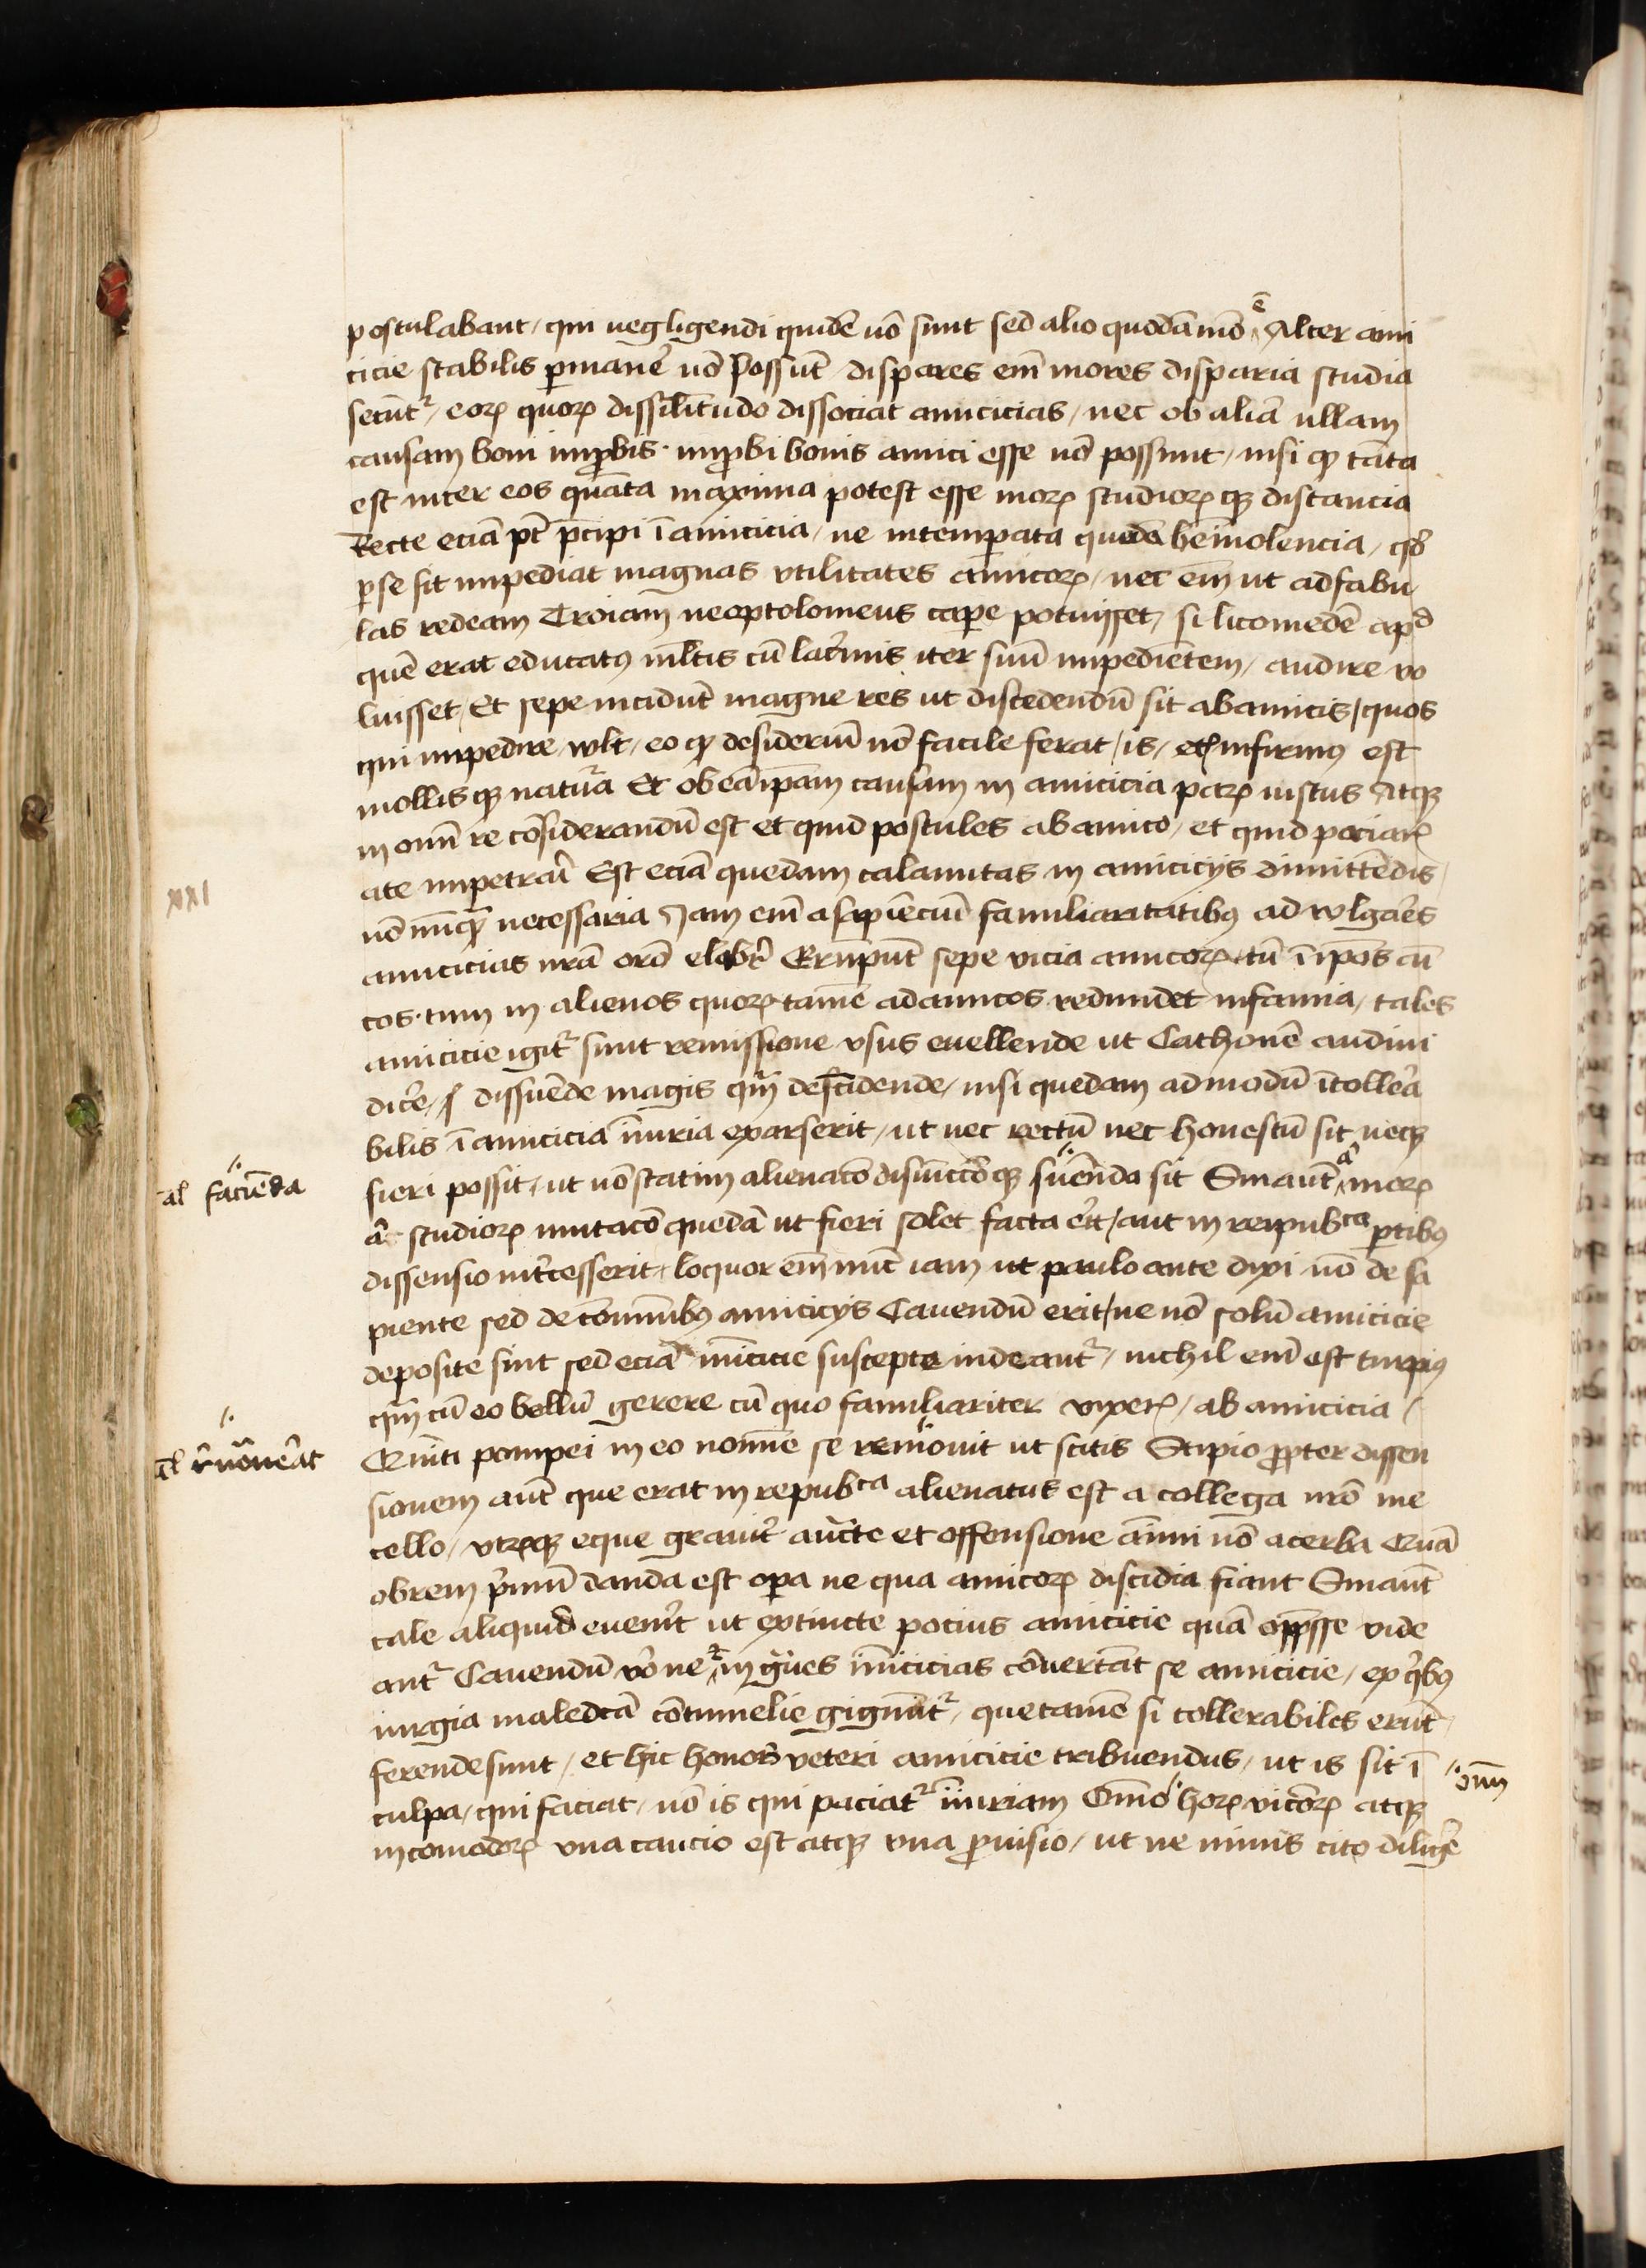 postulabant / qui negligendi quidē nō sunt sed alio quodā mō ē Alter ami
ticie stabilis p̲manē nō possūt dispares em̄ mores disparia studia
secūt² / eoꝝ quoꝝ dissilitudo dissociat amicicias / nec ob aliā ullam
causam boni imp̲bis · imp̲bi bonis amici esse nō possunt / nisi qꝫ tāta
est inter eos quāta maxima potest esse moꝝ studioꝝ qꝫ distancia
Recte eciā pt̄ p̄cipi ī amicicia / ne intemp̲ata quedā beniuolencia / qđ
p̲se sit impediat magnas vtilitates amicoꝝ / nec em̄ ut ad fabu
las redeam Troiam neoptolomeus cap̲e potuisset / si licomedē apᵈ
quē erat educatꝰ mltis cū lacrimis iter suū impediētem / audire vo
luisset / Et sepe incidūt magne res ut discedendū sit ab amicis / quos
qui impedire wlt / eo qꝫ desideriū nō facile ferat / is / et infirmꝰ est
mollis qꝫ natura Et ob eā ip̄am causam in amicicia parꝝ iustus Atqꝫ
in omī re cōsiderandū est et quid postules ab amico / et quid paciarꝭ
a te impetrari Est eciā quedam calamitas in amicicijs dimittēdis /
nō nūqꝫ necessaria Jam em̄ a sapiēciū familiaritatibꝰ ad wlgares
amicicias nrā orō elabr̄ Erūpūt sepe vicia amicoꝝ tū ī ip̄os am̄
cos · tum in alienos quoꝝ tamē ad amicos redundet infamia / tales
amicicie igit² sunt remissione vsus euellende ut Cathonē audiui
dicē / ꝭ dissuēde magis qm̄ descidende / nisi quedam admodū ītollera
bilis ī amicicia iniuria exarserit / ut nec rectū nec honestū sit neqꝫ
fieri possit / ut nō statim alienacō disiūctōqꝫ suenda sit Sin aūt â moꝝ
al facienda
â studioꝝ mutacō quedā ut fieri solet facta erit / aut in reipubᶜᵃ p̲tibꝰ
dissensio int̄cesserit / loquor em̄ nūc iam ut paulo ante dixi nō de sa
piente sed de cōmunibꝰ amicicijs Cauendū erit / ne nō solū amicicie
deposite sint sed eciā inīcicie suscepte uideant² / nichil em̄ est turpiꝰ
qm̄ cū eo bellū gerere cū quo familiariter vixerꝭ / ab amicicia /
Quinti pompei m eo nomīe se remouit ut scitis Scipio p̲pter dissen
al rmouerat
sionem aūt que erat in repubᶜᵃ alienatus est a collega nrō me
tello / vtrꝯqꝫ eque grauit̄ aucte et offensione animi nō acerba Quā
obrem p̄mū danda est op̲a ne qua amicoꝝ discidia fiant Sin aūt
tale aliquid euenit ut extincte pocius amicicie quā opp̄sse vide
ant² Cauendū vō ne in ḡues inīcicias cōuertāt se amicicie / ex qⁱbꝰ
iurgia maledcā cōtumelie gignūt² / que tamē si tollerabiles erūt
ferende sunt / et hic honor veteri amicicie tribuendus / ut is sit ī
culpa / qui faciat / nō is qui paciat² iniuriam Omō hoꝝ vicioꝝ atqꝫ
om̄
incomodoꝝ vna caucio est atqꝫ vna p̲uisio / ut ne nimis cito dilig̅e
XXI